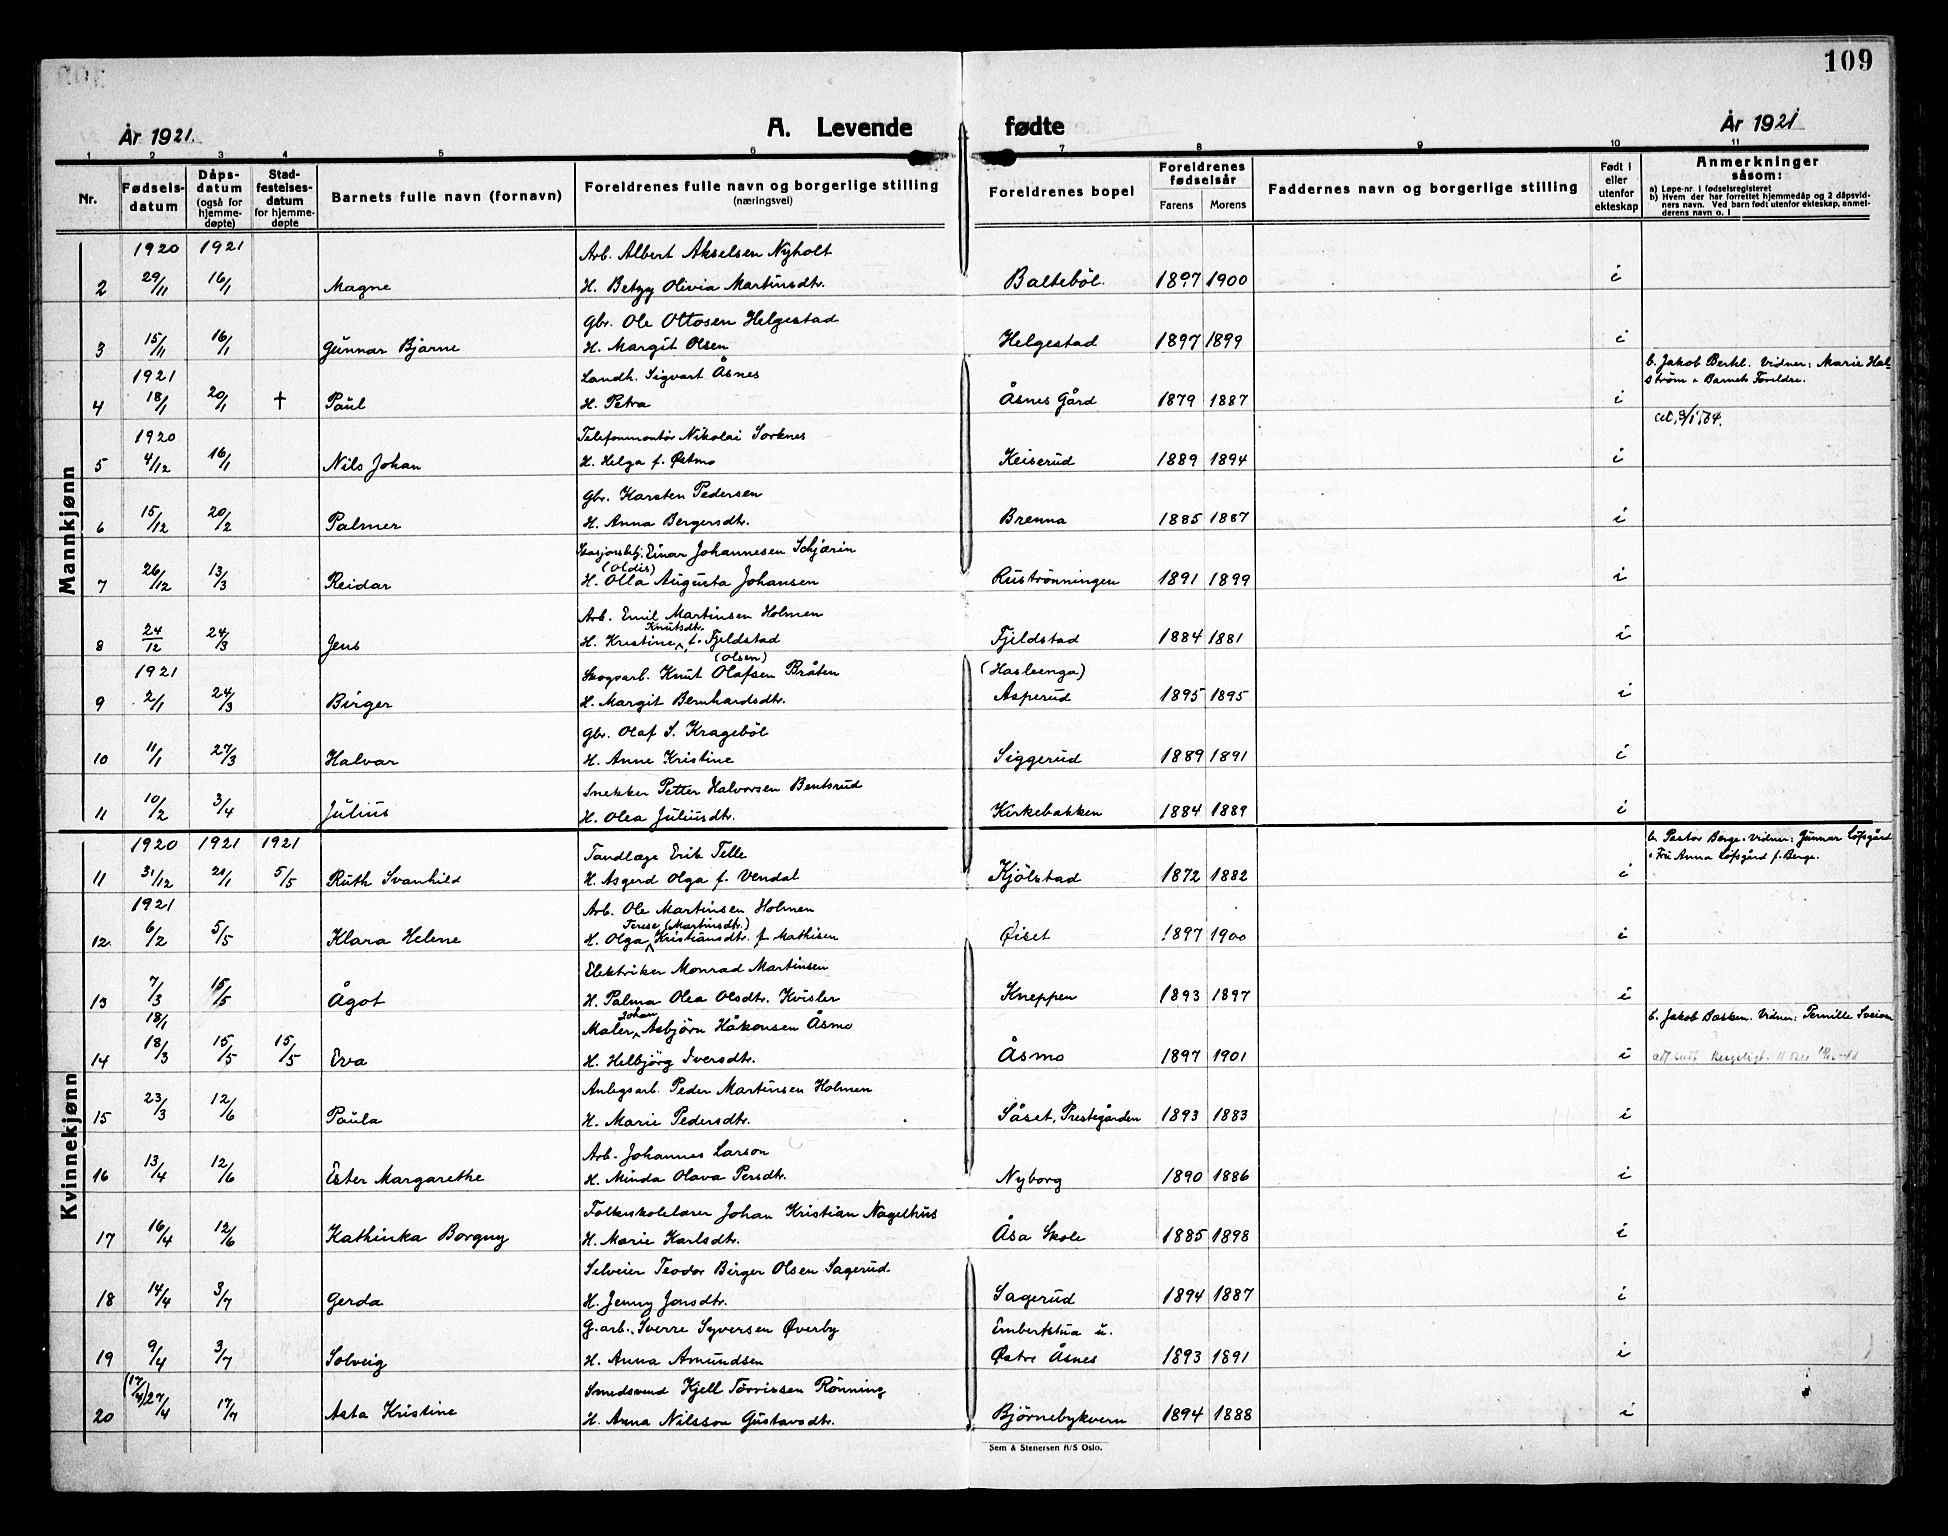 109
År 1921. A. Levende fødte År 1921
1 2 3 4 5 6 7 8 9 10 11
Nr. Fødselsdatum Dåpsdatum (også for hjemmedøpte) Stadfestelsesdatum for hjemmedøpte Barnets fulle navn (fornavn) Foreldrenes fulle navn og borgerlige stilling (næringsvei) Foreldrenes bopel Foreldrenes fødselsår Farens Morens Faddernes navn og borgerlige stilling Født i eller utenfor ekteskap Anmerkninger såsom:
a) Løpe-nr. i fødselsregisteret
b) Hvem der har forrettet hjemmedåp og 2 dåpsvidners navn. Ved barn født utenfor ekteskap, anmelderens navn o. l
Mannkjønn
1920 1921 Arb. Albert Akselsen Nyholt
2 29/11 16/1 Magne H. Betzy Olivia Martinsdtr. Baltebøl. 1897 1900 i
Gbr. Ole Ottosen Helgestad
3 15/11 16/1 Gunnar Bjarne H. Margit Olsen Helgestad 1897 1899 i
1921 Landh. Sigvart Åsnes b. Jakob Berkl. Vidner: Marie Hal-
ström + Barnets Foreldre.
4 18/1 20/1 † Paul H. Petra Åsnes Gård 1879 1887 i
1920 Telefonmontør Nikolai Sorknes
5 4/12 16/1 Nils Johan H. Helga f. Østmo Keiserud 1889 1894 i
Gbr. Karsten Pedersen
6 15/12 20/2 Palmer H. Anna Bergersdtr. Brenna 1885 1887 i
Stasjonsbetj. Einar Johannesen Schjærin
(Oldis)
7 26/12 13/3 Reidar H. Olla Augusta Johansen Rustrønningen 1891 1899 i
Arb. Emil Martinsen Holmen
Knutsdtr.
8 24/12 24/3 Jens H. Kristine f. Fjeldstad Fjeldstad 1884 1881 i
(Olsen)
1921 Skogsarb. Knut Olafsen Bråten (Hasleenga)
9 2/1 24/3 Birger H. Margit Bernhardsdtr. Asperud 1895 1895 i
Gbr. Olaf S. Kragebøl
10 11/1 27/3 Halvar H. Anne Kristine Siggerud 1889 1891 i
Snekker Petter Halvorsen Bentsrud
11 10/2 3/4 Julius H. Olea Juliusdtr. Kirkebakken 1884 1889 i
Kvinnekjønn
1920 1921 1921 Tandlæge Erik Telle b. Pastor Berge. Vidner: Gunnar Løfsgård
+ Fru Anna Løfsgård f. Berge.
11 31/12 21/1 5/5 Ruth Svanhild H. Asgerd Olga f. Vendal Kjølstad 1872 1882 i
1921 Arb. Ole Martinsen Holmen
Terese (Martinsdtr.)
12. 6/2 5/5 Klara Helene H. Olga Kristiansdtr. f. Mathisen Øiset 1897 1900 i
Elektriker Monrad Martinsen
13 7/3 15/5 Ågot H. Palma Olea Olsdtr. Kvisler Kneppen 1893 1897 i
18/1 Johan
Maler Asbjørn Håkonsen Åsmo b. Jakob Basken. Vidner: Pernille Sveium
14 18/3 15/5 15/5 Eva H. Helbjörg Iversdtr. Åsmo 1897 1901 i
Anlegsarb. Peder Martinsen Holmen
15 23/3 12/6 Paula H. Marie Pedersdtr. Såset, Prestegården 1893 1883 i
Arb. Johannes Larson
16 13/4 12/6 Ester Margarethe H. Minda Olava Persdtr. Nyborg 1890 1886 i
Folkeskolelærer Johan Kristian Nagelhus
17 16/4 12/6 Kathinka Borgny H. Marie Karlsdtr. Åsa Skole 1885 1898 i
Selveier Teodor Birger Olsen Sagerud.
18 14/4 3/7 Gerda H. Jenny Jonsdtr. Sagerud 1894 1887 i
G.arb. Sverre Syversen Øverby Embertstua u.
19 9/4 3/7 Solveig H. Anna Amundsen Østre Åsnes 1893 1891 i
(17/4) Smedsvend Kjell Torrissen Rönning
20 27/4 17/7 Asta Kristine H. Anna Nilsson Gustavsdtr. Björnebykvern 1894 1888 i
Sem & Stenersen A/S Oslo.